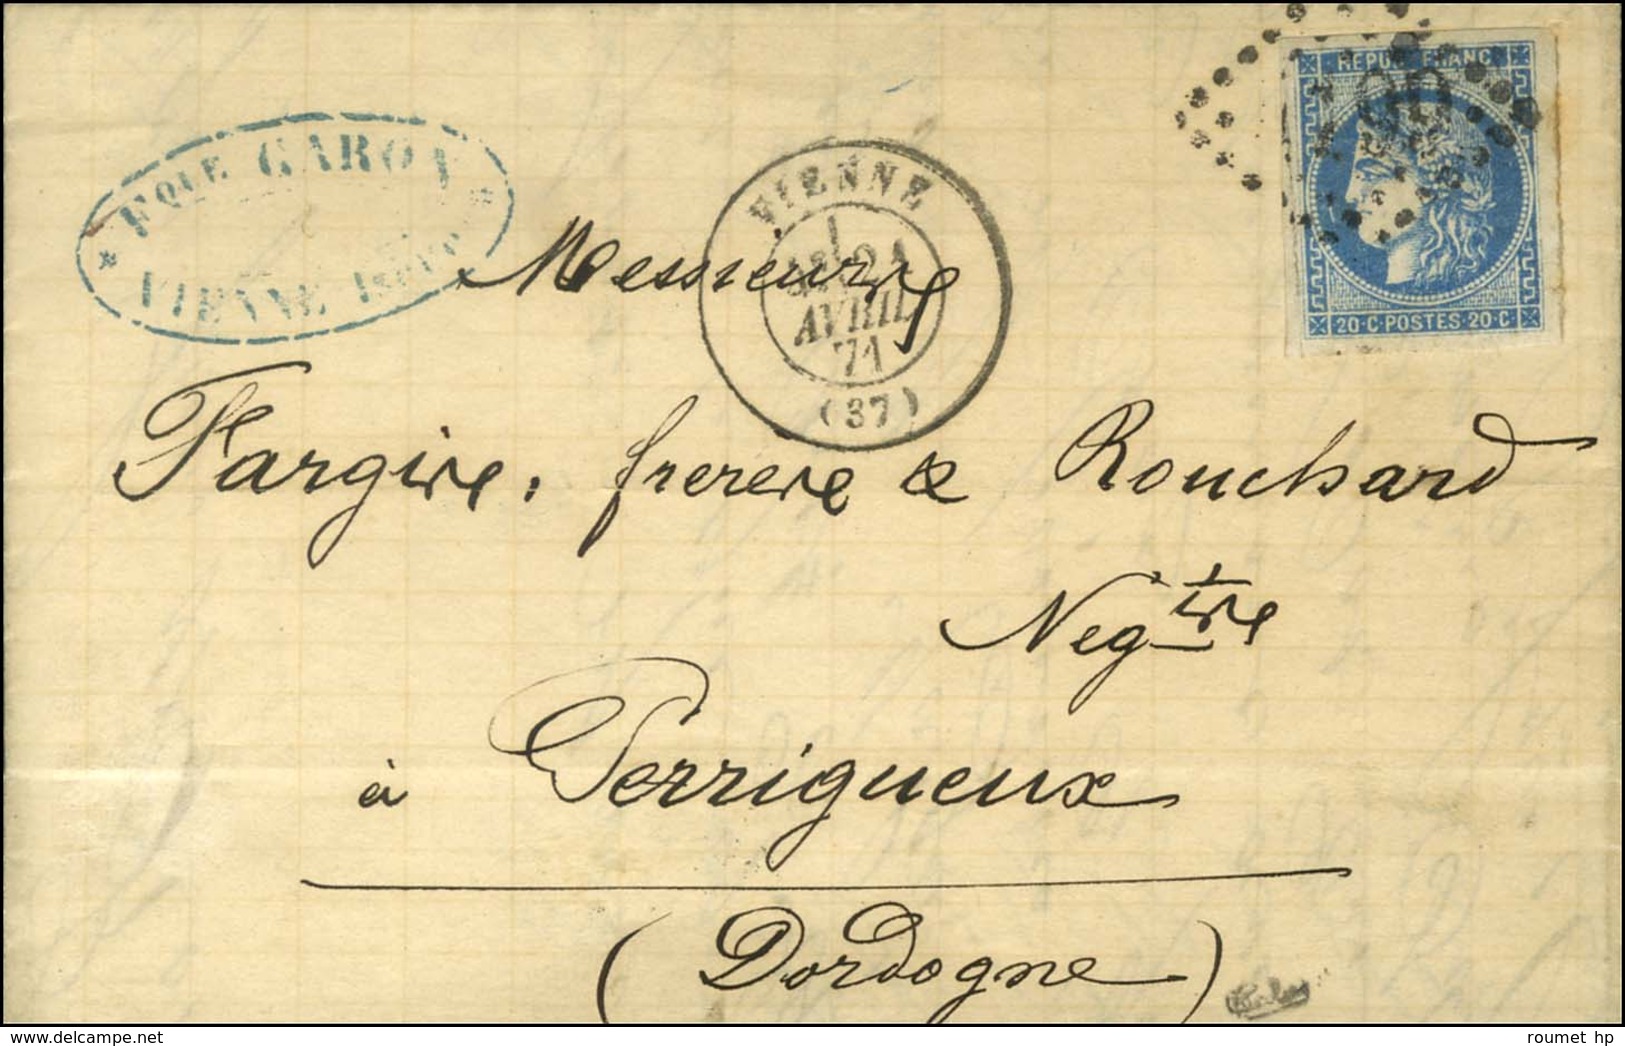 Fque GARON
VIENNE Isère
VIENNE
1
21
AVRIL
71
(37)
REPUB FRANC
20·C·POSTES·20·C
Messieurs
Fargire, frerere & Rouchard
Negtre
à Perrigueux
(Dordogne)
delcampe.net
roumet hp